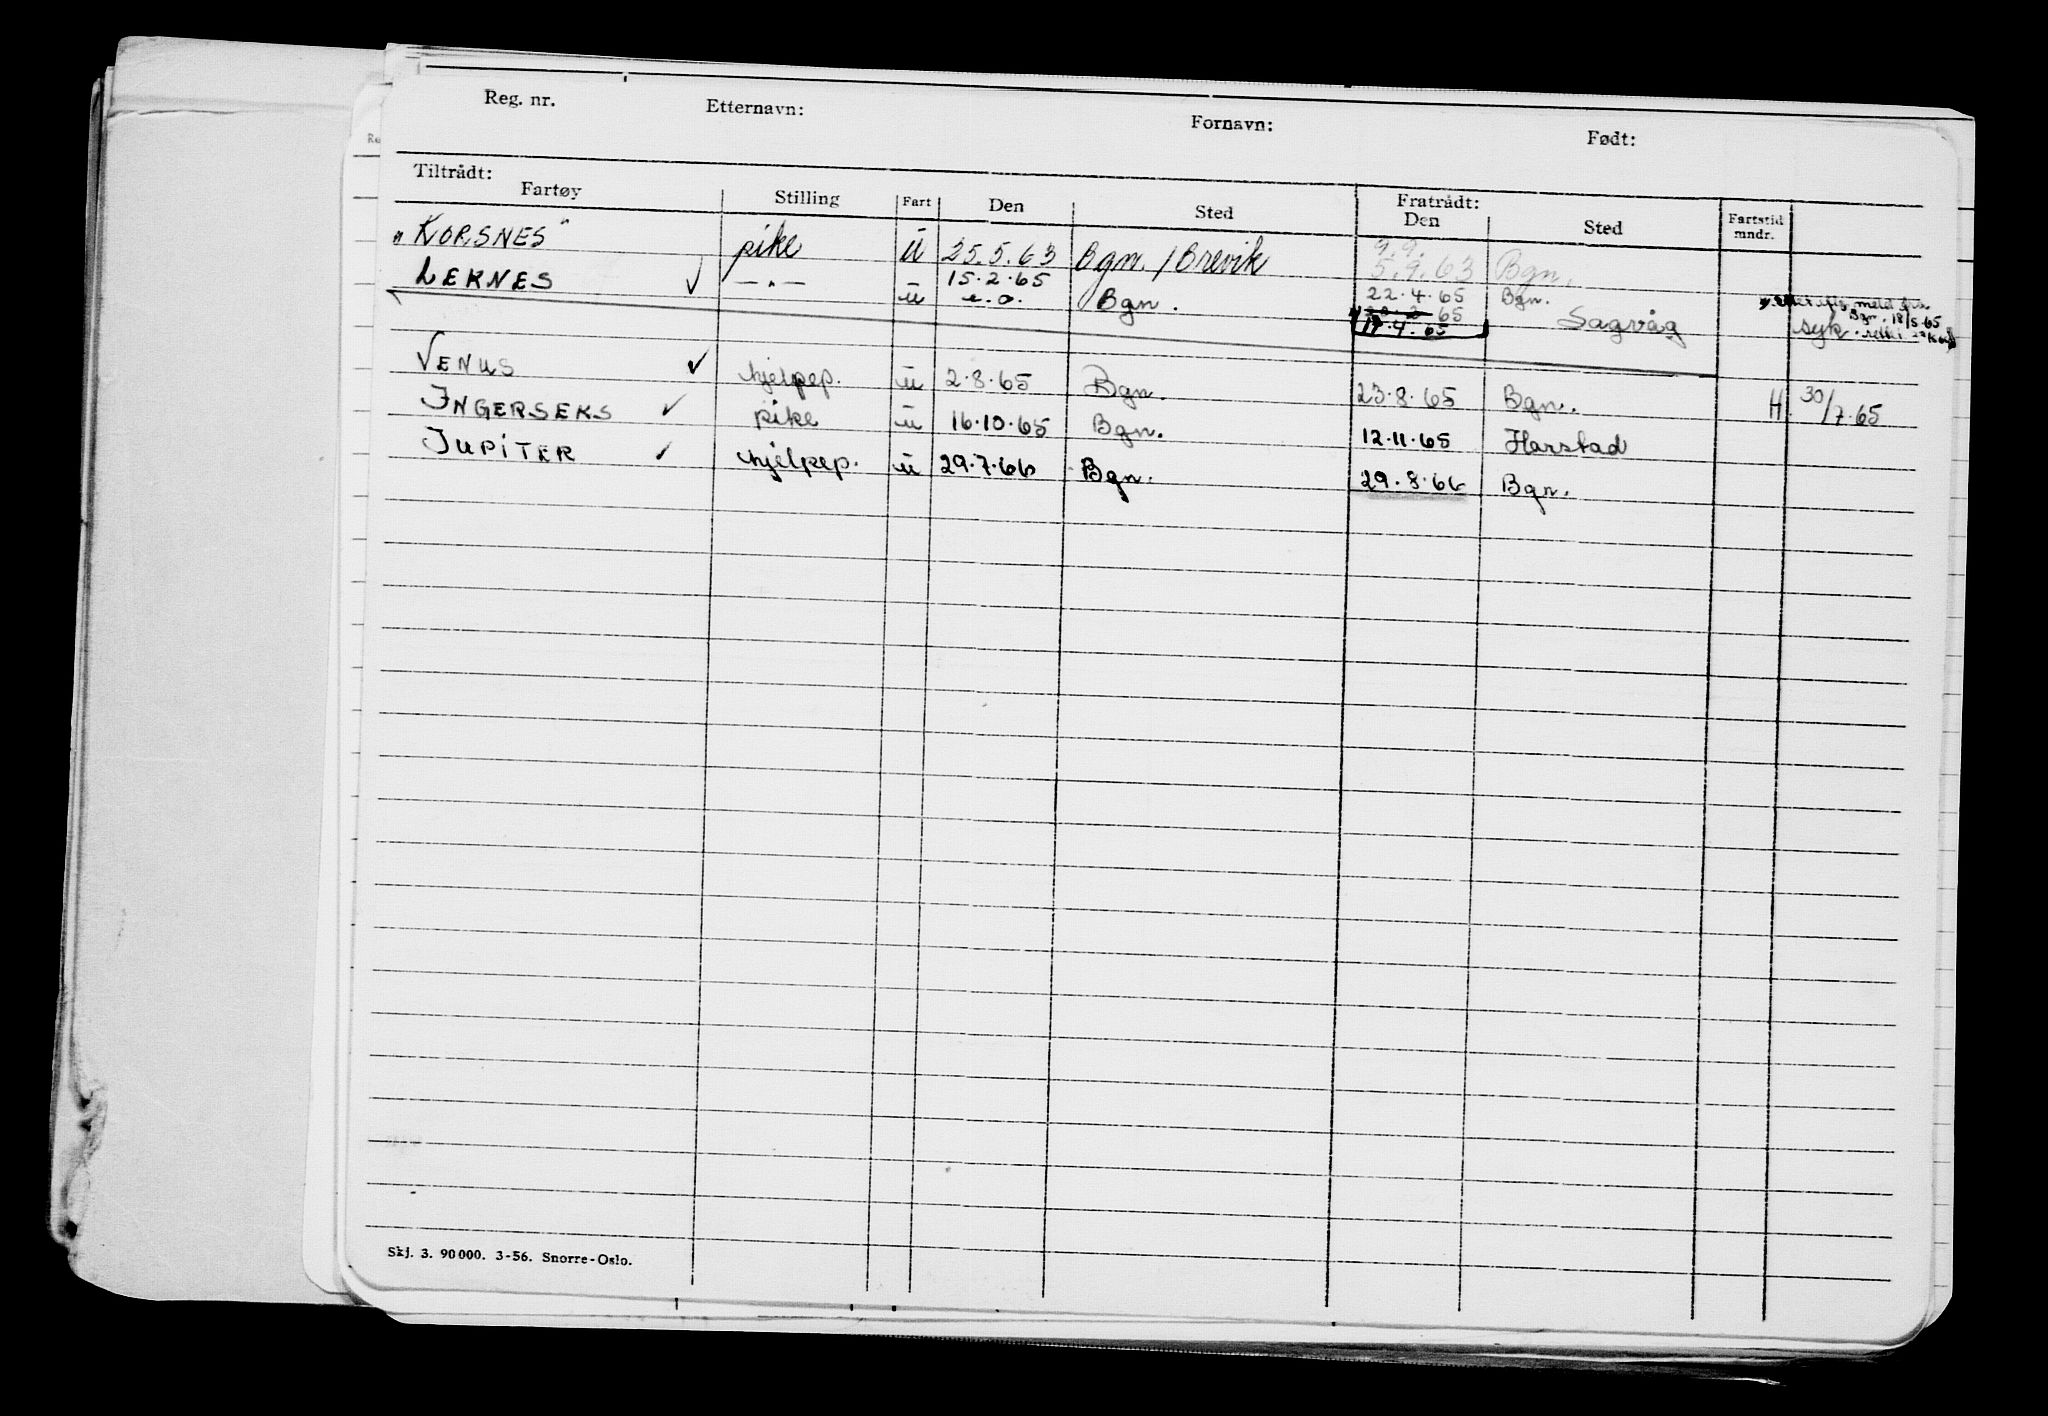 Reg. nr. Etternavn: Fornavn: Født:
Tiltrådt: Fratrådt:
Fartøy Stilling Fart Den Sted Den Sted Fartstid mndr.
"KORSNES" pike ü 25.5.63 Bgn. / Brevik 9.9. 5.9.63 Bgn.
LERNES √ —"— ü 15.2.65 Bgn. 22.4.65 Bgn. meld fra
65 Bgn. 18/5.65
17.4.65 Sagvåg syk.
VENUS √ hjelpep. ü 2.8.65 Bgn. 23.8.65 Bgn. H. 30/7.65
INGERSEKS √ pike ü 16.10.65 Bgn. 12.11.65 Harstad
JUPITER √ hjelpep. ü 29.7.66 Bgn. 29.8.66 Bgn.
Skj. 3. 90000. 3-56. Snorre-Oslo.